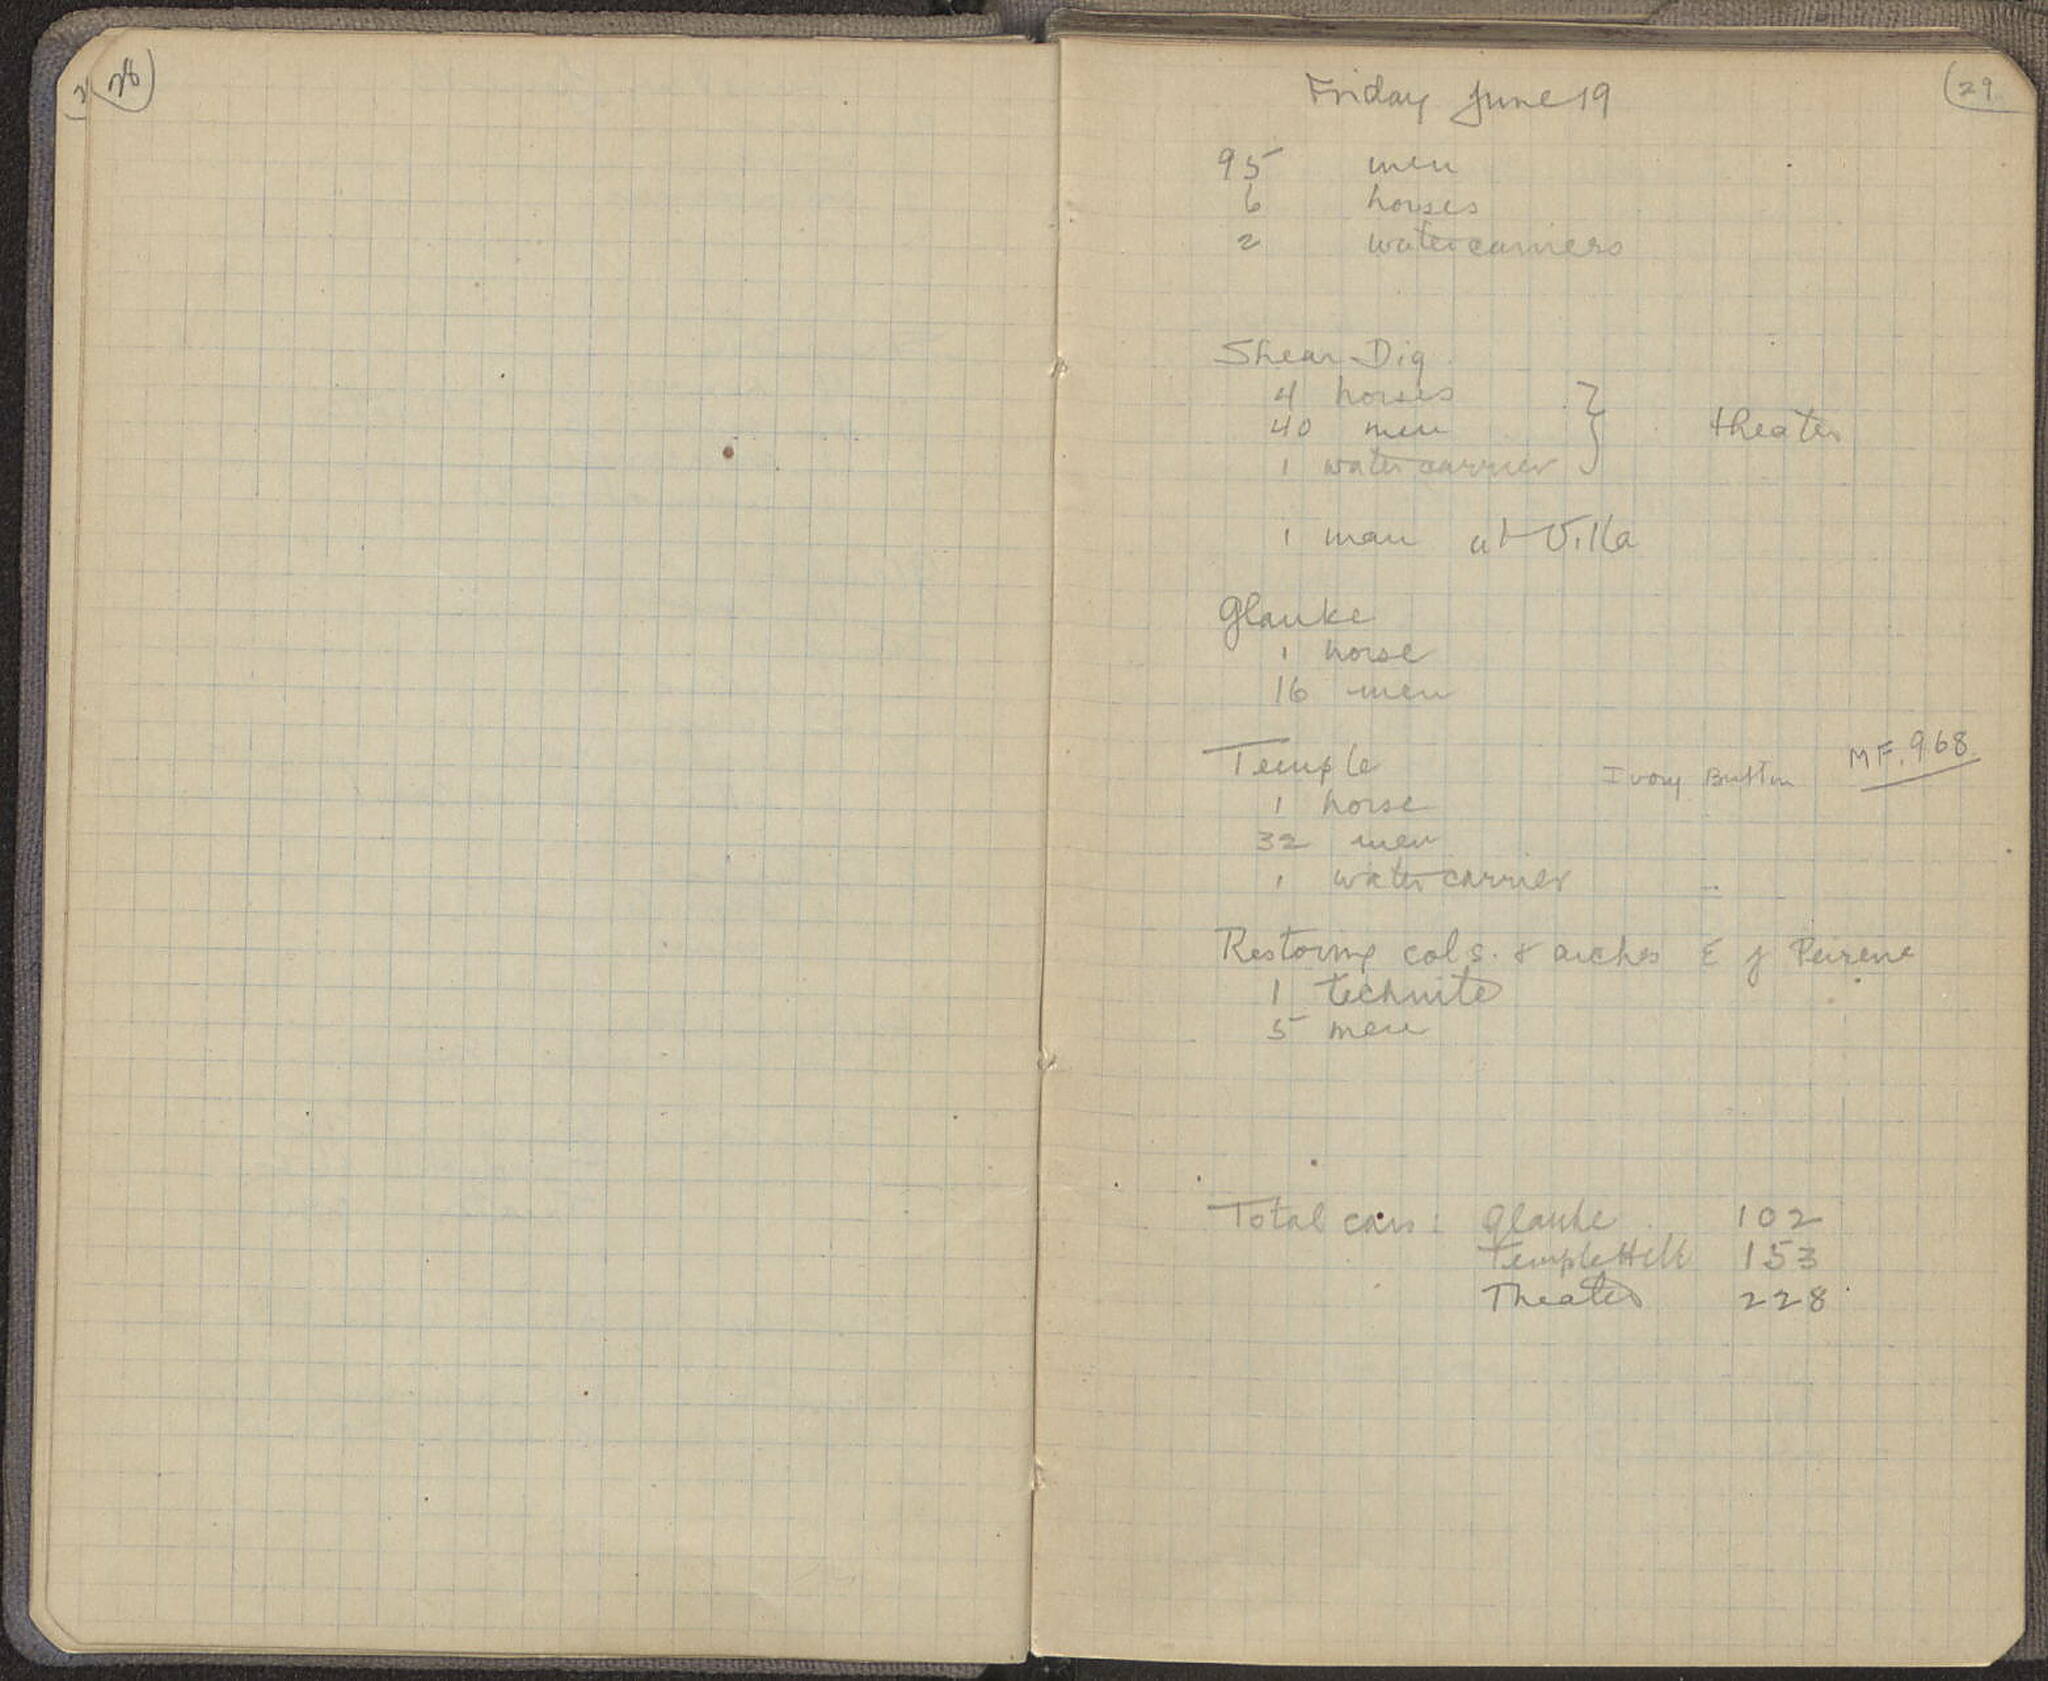 28
29
Friday June 19
95 men
6 horses
2 watercarriers
Shear Dig
4 horses
40 men } theater
1 water carrier
1 man at Villa
Glauke
1 horse
16 men
Temple Ivory Button MF. 968
1 horse
32 men
1 water carrier
Restoring cols. & arches E of Peirene
1 technite
5 men
Total cars: Glauke 102
Temple Hill 153
Theater 228